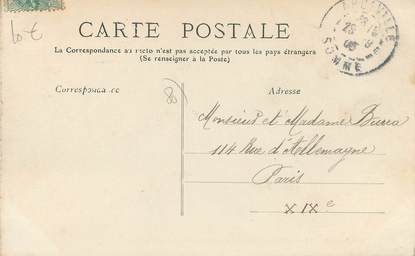 10 €
CARTE POSTALE
La Correspondance au recto n'est pas acceptée par tous les pays étrangers
(Se renseigner à la Poste)
Correspondance
80
Adresse
SOMME
Monsieur et Madame
114 Rue d'Allemagne
Paris
XIXe